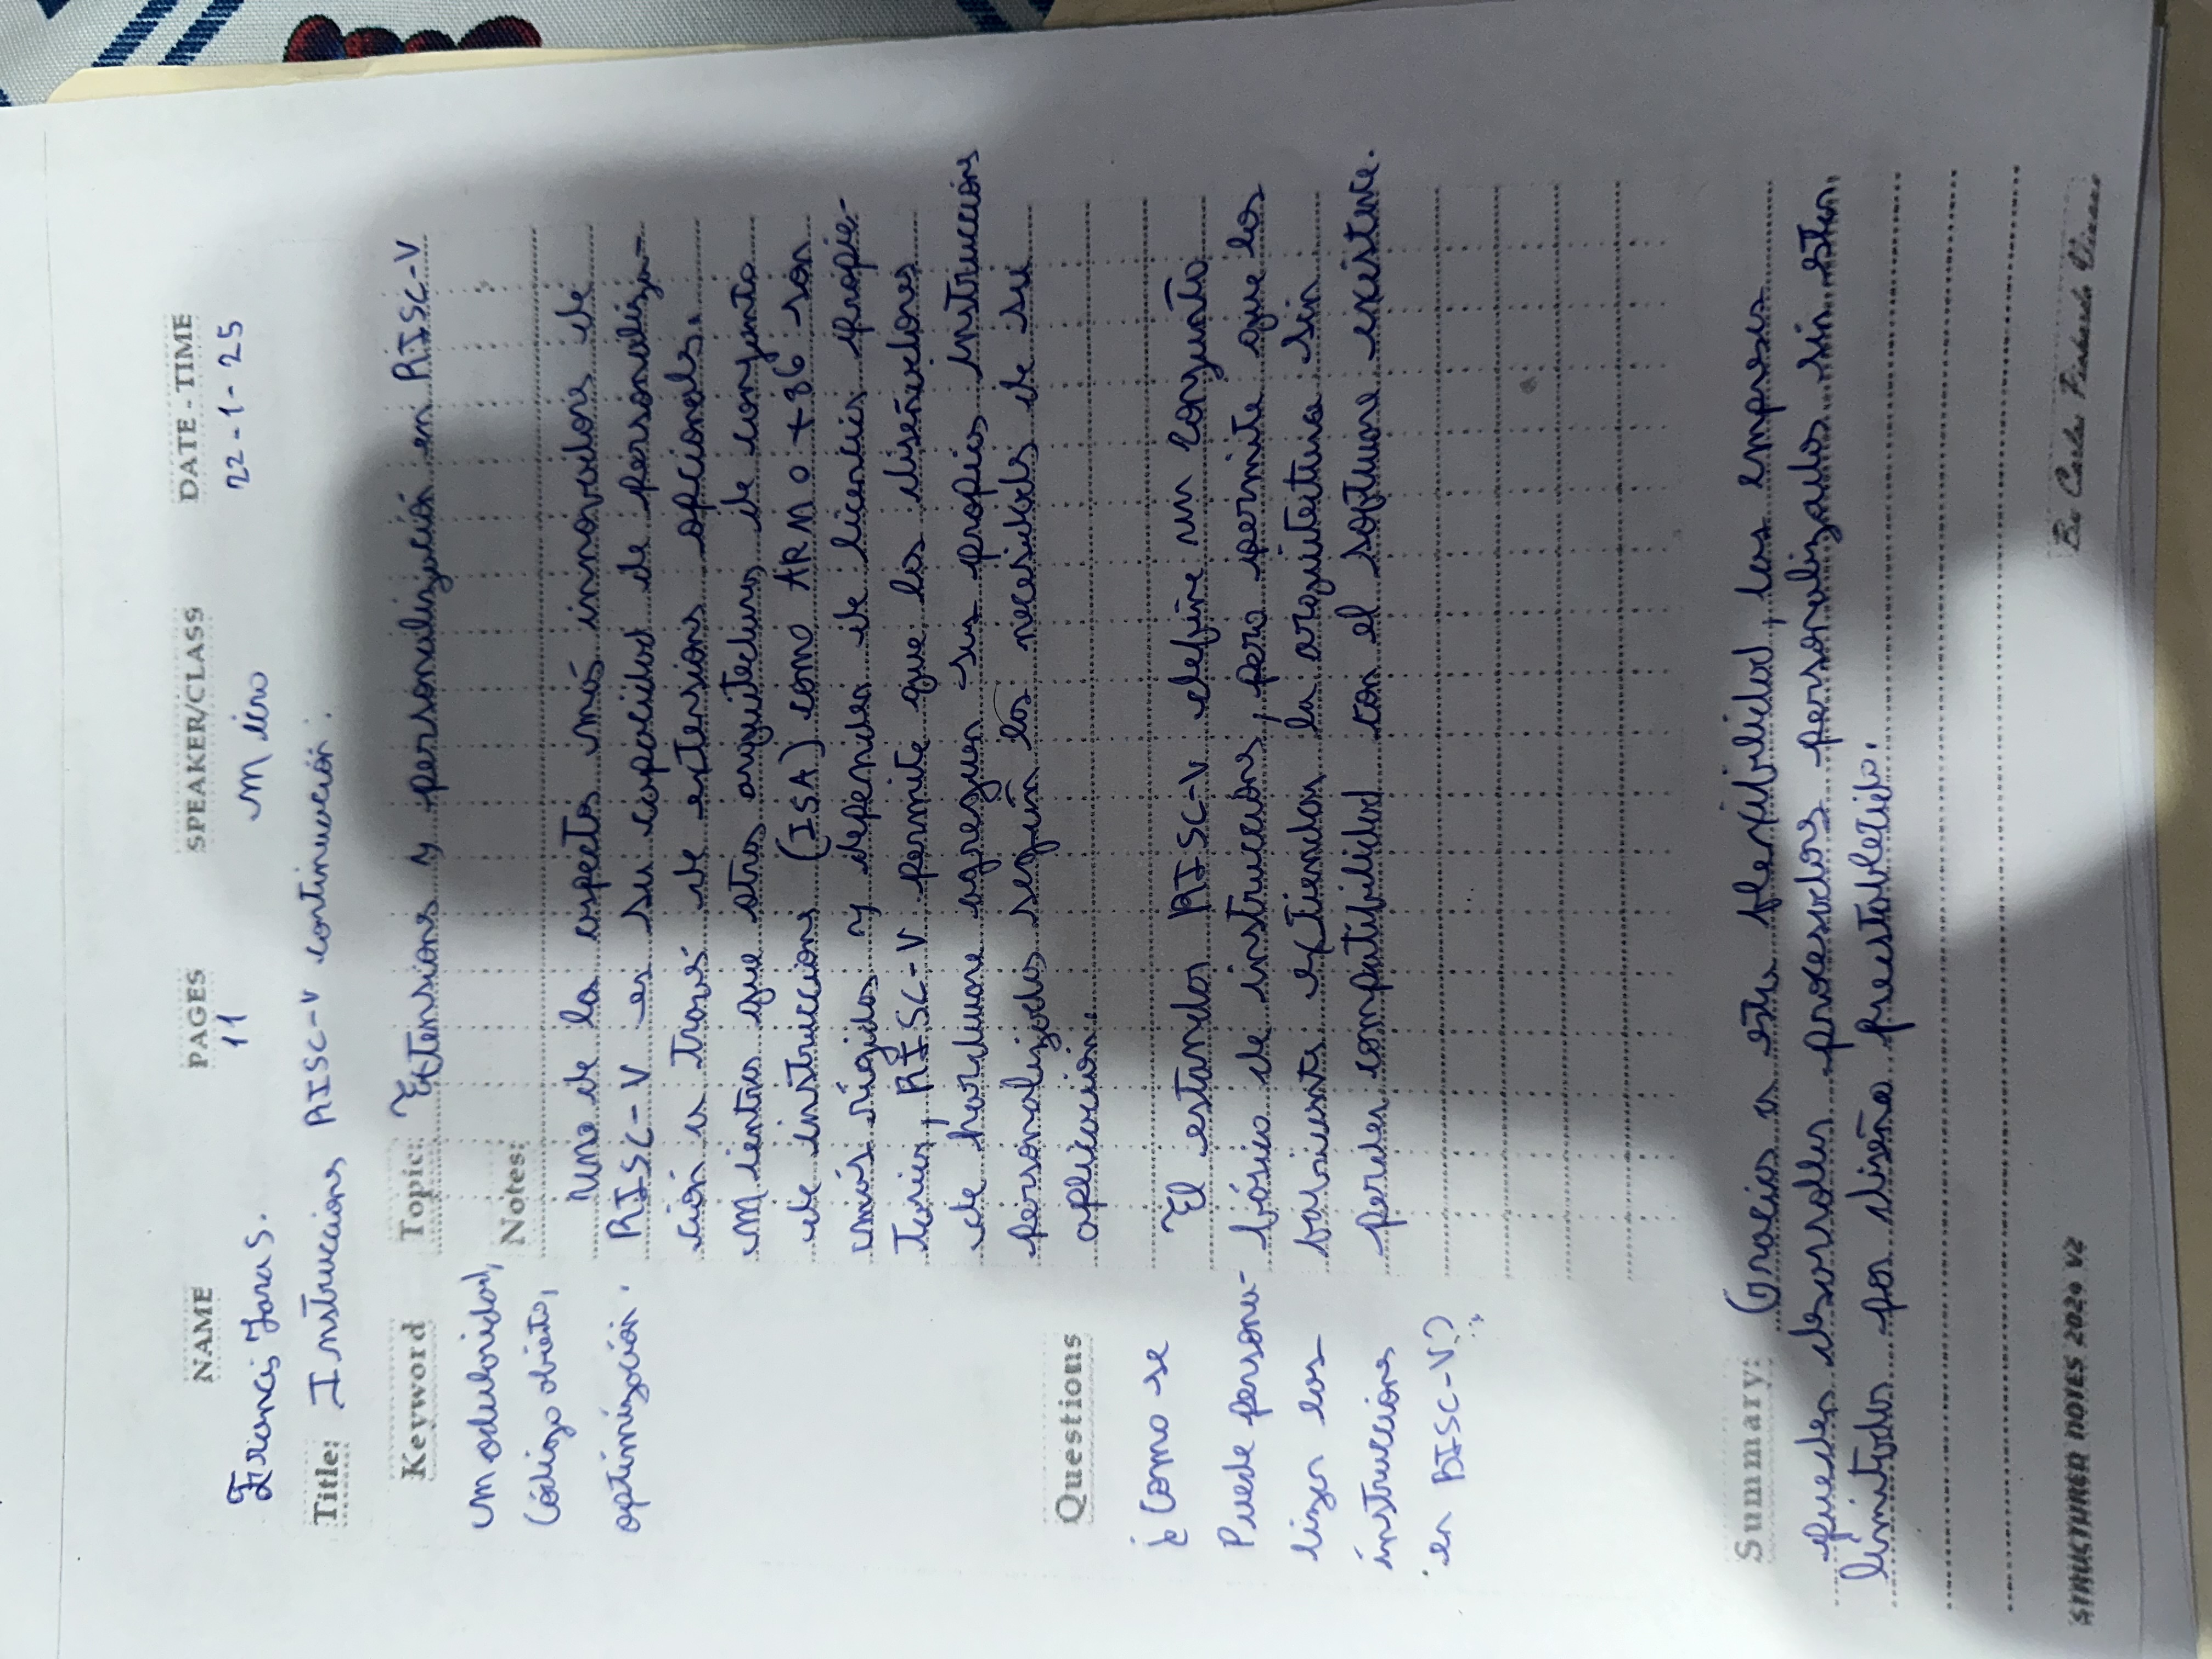 NAME PAGES SPEAKER/CLASS DATE - TIME
Francis Jara S. 11 Micro 22-1-25
Title: Instrucciones RISC-V continuación:
Keyword
Modularidad,
Código abierto,
optimización.
Topic: Extensiones y personalización en RISC-V
Notes:
Uno de los aspectos más innovadores de
RISC-V es su capacidad de personaliza-
ción a través de extensiones opcionales.
Mientras que otras arquitecturas de conjunto
de instrucciones (ISA) como ARM o x86 son
más rígidas y dependen de licencias propie-
tarias, RISC-V permite que los diseñadores
de hardware agreguen sus propias instrucciones
personalizadas según las necesidades de su
aplicación.
El estándar RISC-V define un conjunto
básico de instrucciones, pero permite que los
fabricantes extiendan la arquitectura sin
perder compatibilidad con el software existente.
Questions
¿Como se
Puede persona-
lizar las
instrucciones
en RISC-V?
Summary: Gracias a esta flexibilidad, las empresas
pueden desarrollar procesadores personalizados sin estar
limitados por diseño preestablecido.
STRUCTURED NOTES 2024 V2
By Carlos